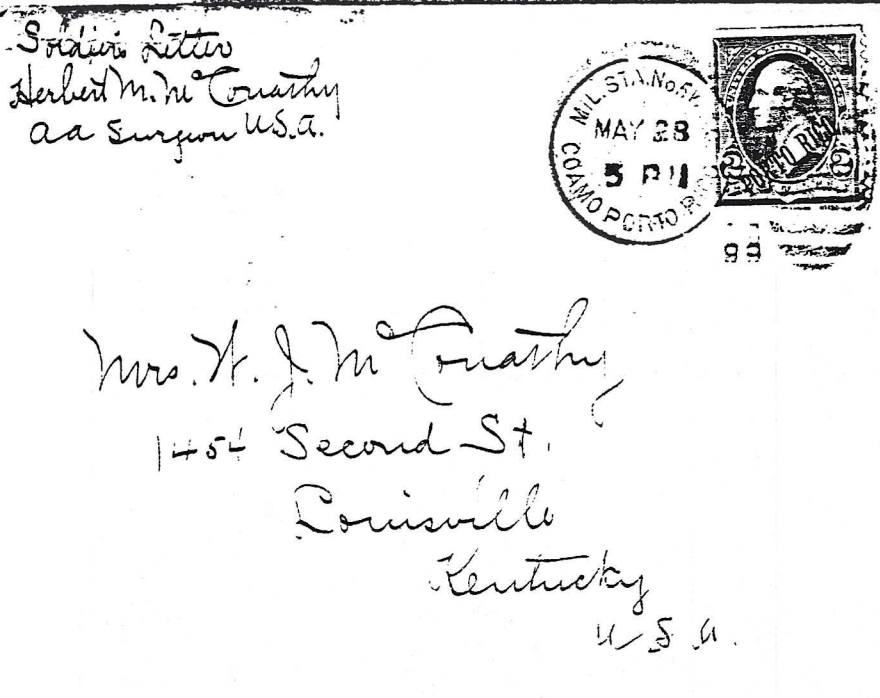 Soldier's Letter
Herbert M. McConathy
aa Surgeon U.S.A.
MIL. STA. No.
COAMO PORTO
MAY 28
5 P
99
2 PORTO RICO 2
Mrs. W. J. McConathy
1454 Second St.
Louisville
Kentucky
U.S.A.